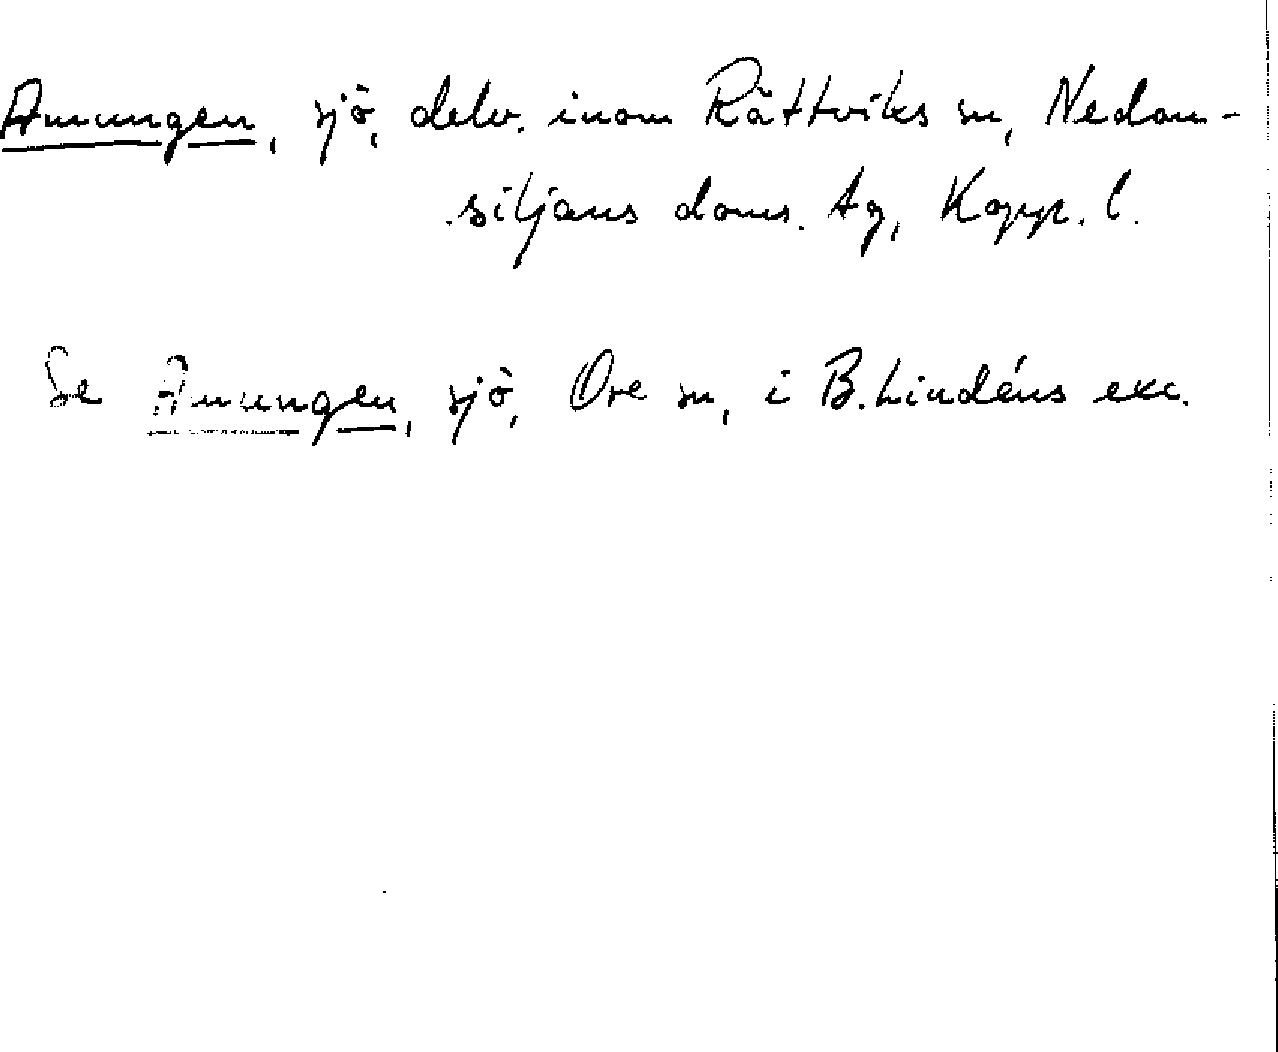 Amungen, sjö, delv. inom Rättviks sn, Nedan-
siljans doms. tg, Kopp. l.
Se Amungen, sjö, Ore sn, i B. Lindéns exc.